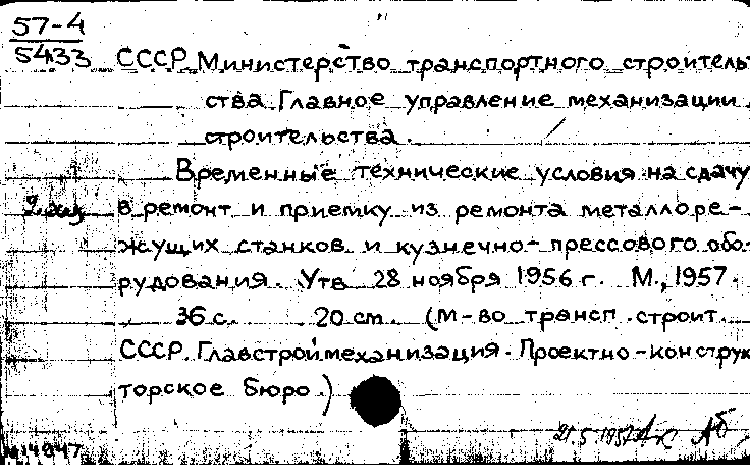 57-4
5433
СССР. Министерство транспортного строитель
ства. Главное управление механизации
строительства.
Временные технические условия на сдачу
2 экз
в ремонт и приемку из ремонта металлоре-
жущих станков и кузнечно-прессового обо-
рудования. Утв 28 ноября 1956 г. М., 1957.
36 с. 20 cm. (М-во трансп. строит.
СССР. Главстроймеханизация. Проектно-конструк
торское бюро.)
21.5.1957